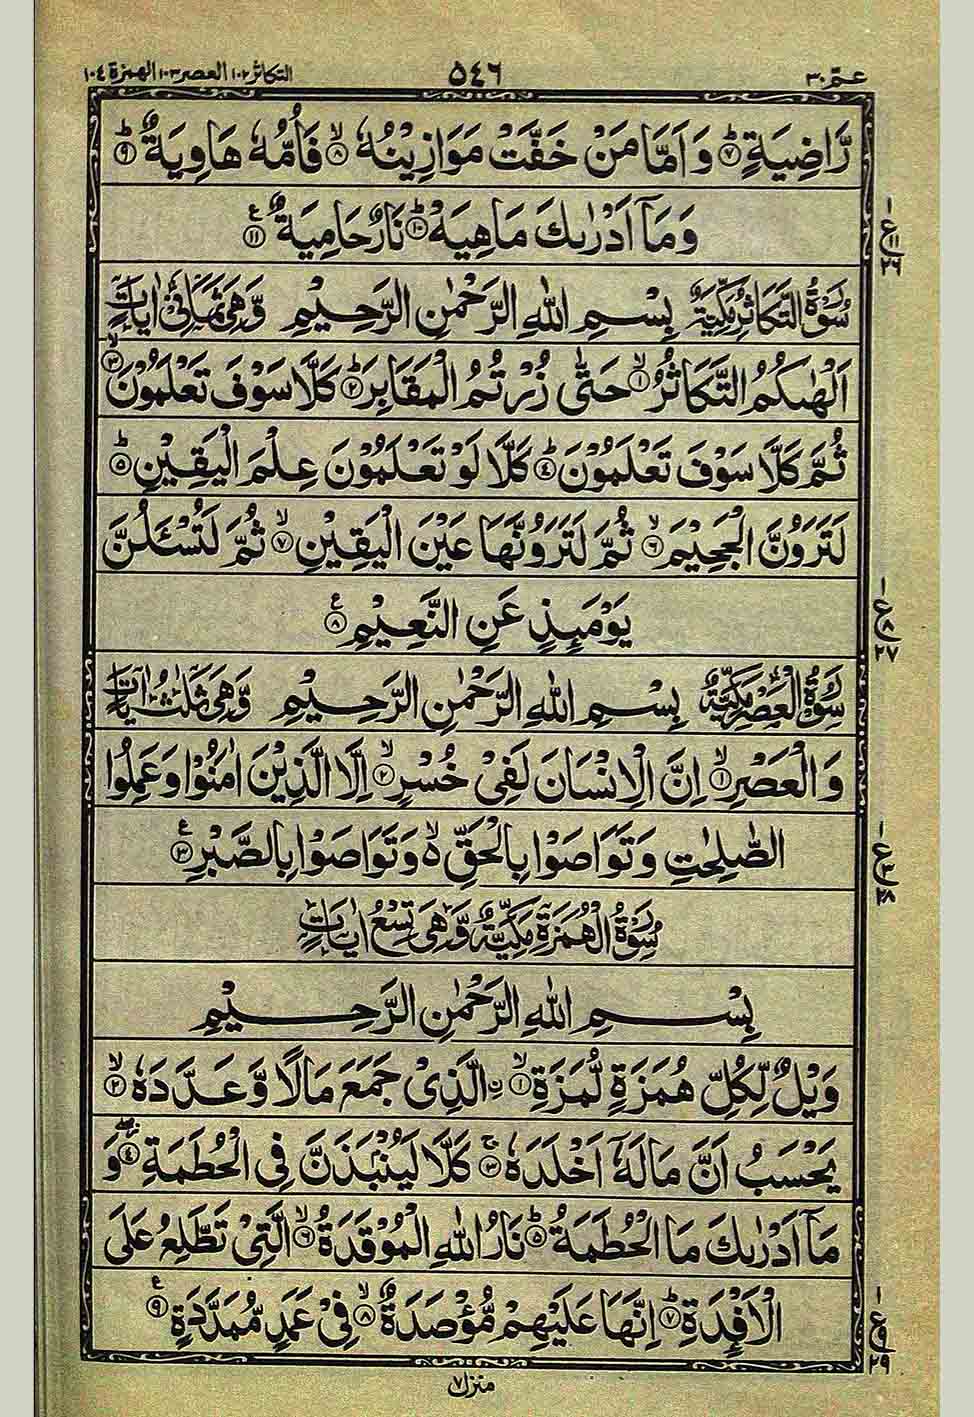 عمّ ٣٠ ٥٤٦ التكاثر ١٠٢ العصر ١٠٣ الهمزة ١٠٤
رَّاضِيَةٍ ؕ‏﴿۷﴾ وَاَمَّا مَنْ خَفَّتْ مَوَازِيْنُهٗ ۙ‏﴿۸﴾ فَاُمُّهٗ هَاوِيَةٌ ؕ‏﴿۹﴾
وَمَاۤ اَدْرٰىكَ مَاهِيَهْ ؕ‏﴿۱۰﴾ نَارٌ حَامِيَةٌ ‏﴿۱۱﴾ ع
ع ١ ١١ ٢٦
سُوْرَةُ التَّكَاثُرِ مَكِّيَّةٌ بِسْمِ اللّٰهِ الرَّحْمٰنِ الرَّحِيْمِ وَّهِىَ ثَمَانِىْ اٰيَاتٍ
اَلْهٰٮكُمُ التَّكَاثُرُ ۙ‏﴿۱﴾ حَتّٰى زُرْتُمُ الْمَقَابِرَ ؕ‏﴿۲﴾ كَلَّا سَوْفَ تَعْلَمُوْنَ ۙ‏﴿۳﴾
ثُمَّ كَلَّا سَوْفَ تَعْلَمُوْنَ ؕ‏﴿۴﴾ كَلَّا لَوْ تَعْلَمُوْنَ عِلْمَ الْيَقِيْنِ ؕ‏﴿۵﴾
لَتَرَوُنَّ الْجَحِيْمَ ۙ‏﴿۶﴾ ثُمَّ لَتَرَوُنَّهَا عَيْنَ الْيَقِيْنِ ۙ‏﴿۷﴾ ثُمَّ لَتُسْـَٔلُنَّ
يَوْمَٮِٕذٍ عَنِ النَّعِيْمِ ‏﴿۸﴾ ع
ع ١ ٨ ٢٧
سُوْرَةُ الْعَصْرِ مَكِّيَّةٌ بِسْمِ اللّٰهِ الرَّحْمٰنِ الرَّحِيْمِ وَّهِىَ ثَلٰثُ اٰيَاتٍ
وَالْعَصْرِ ۙ‏﴿۱﴾ اِنَّ الْاِنْسَانَ لَفِىْ خُسْرٍ ۙ‏﴿۲﴾ اِلَّا الَّذِيْنَ اٰمَنُوْا وَعَمِلُوا
الصّٰلِحٰتِ وَتَوَاصَوْا بِالْحَقِّ ۙ۬ وَتَوَاصَوْا بِالصَّبْرِ ‏﴿۳﴾ ع
ع ١ ٣ ٢٨
سُوْرَةُ الْهُمَزَةِ مَكِّيَّةٌ وَّهِىَ تِسْعُ اٰيَاتٍ
بِسْمِ اللّٰهِ الرَّحْمٰنِ الرَّحِيْمِ
وَيْلٌ لِّكُلِّ هُمَزَةٍ لُّمَزَةِ ۙ‏﴿۱﴾ ن الَّذِىْ جَمَعَ مَالًا وَّعَدَّدَهٗ ۙ‏﴿۲﴾
يَحْسَبُ اَنَّ مَالَهٗۤ اَخْلَدَهٗ ۚ‏﴿۳﴾ كَلَّا لَيُنْۢبَذَنَّ فِى الْحُطَمَةِ ۖ‏﴿۴﴾ وَ
مَاۤ اَدْرٰىكَ مَا الْحُطَمَةُ ؕ‏﴿۵﴾ نَارُ اللّٰهِ الْمُوْقَدَةُ ۙ‏﴿۶﴾ الَّتِىْ تَطَّلِعُ عَلَى
الْاَفْـِٕدَةِ ؕ‏﴿۷﴾ اِنَّهَا عَلَيْهِمْ مُّؤْصَدَةٌ ۙ‏﴿۸﴾ فِىْ عَمَدٍ مُّمَدَّدَةٍ ‏﴿۹﴾ ع
ع ١ ٩ ٢٩
منزل ٧